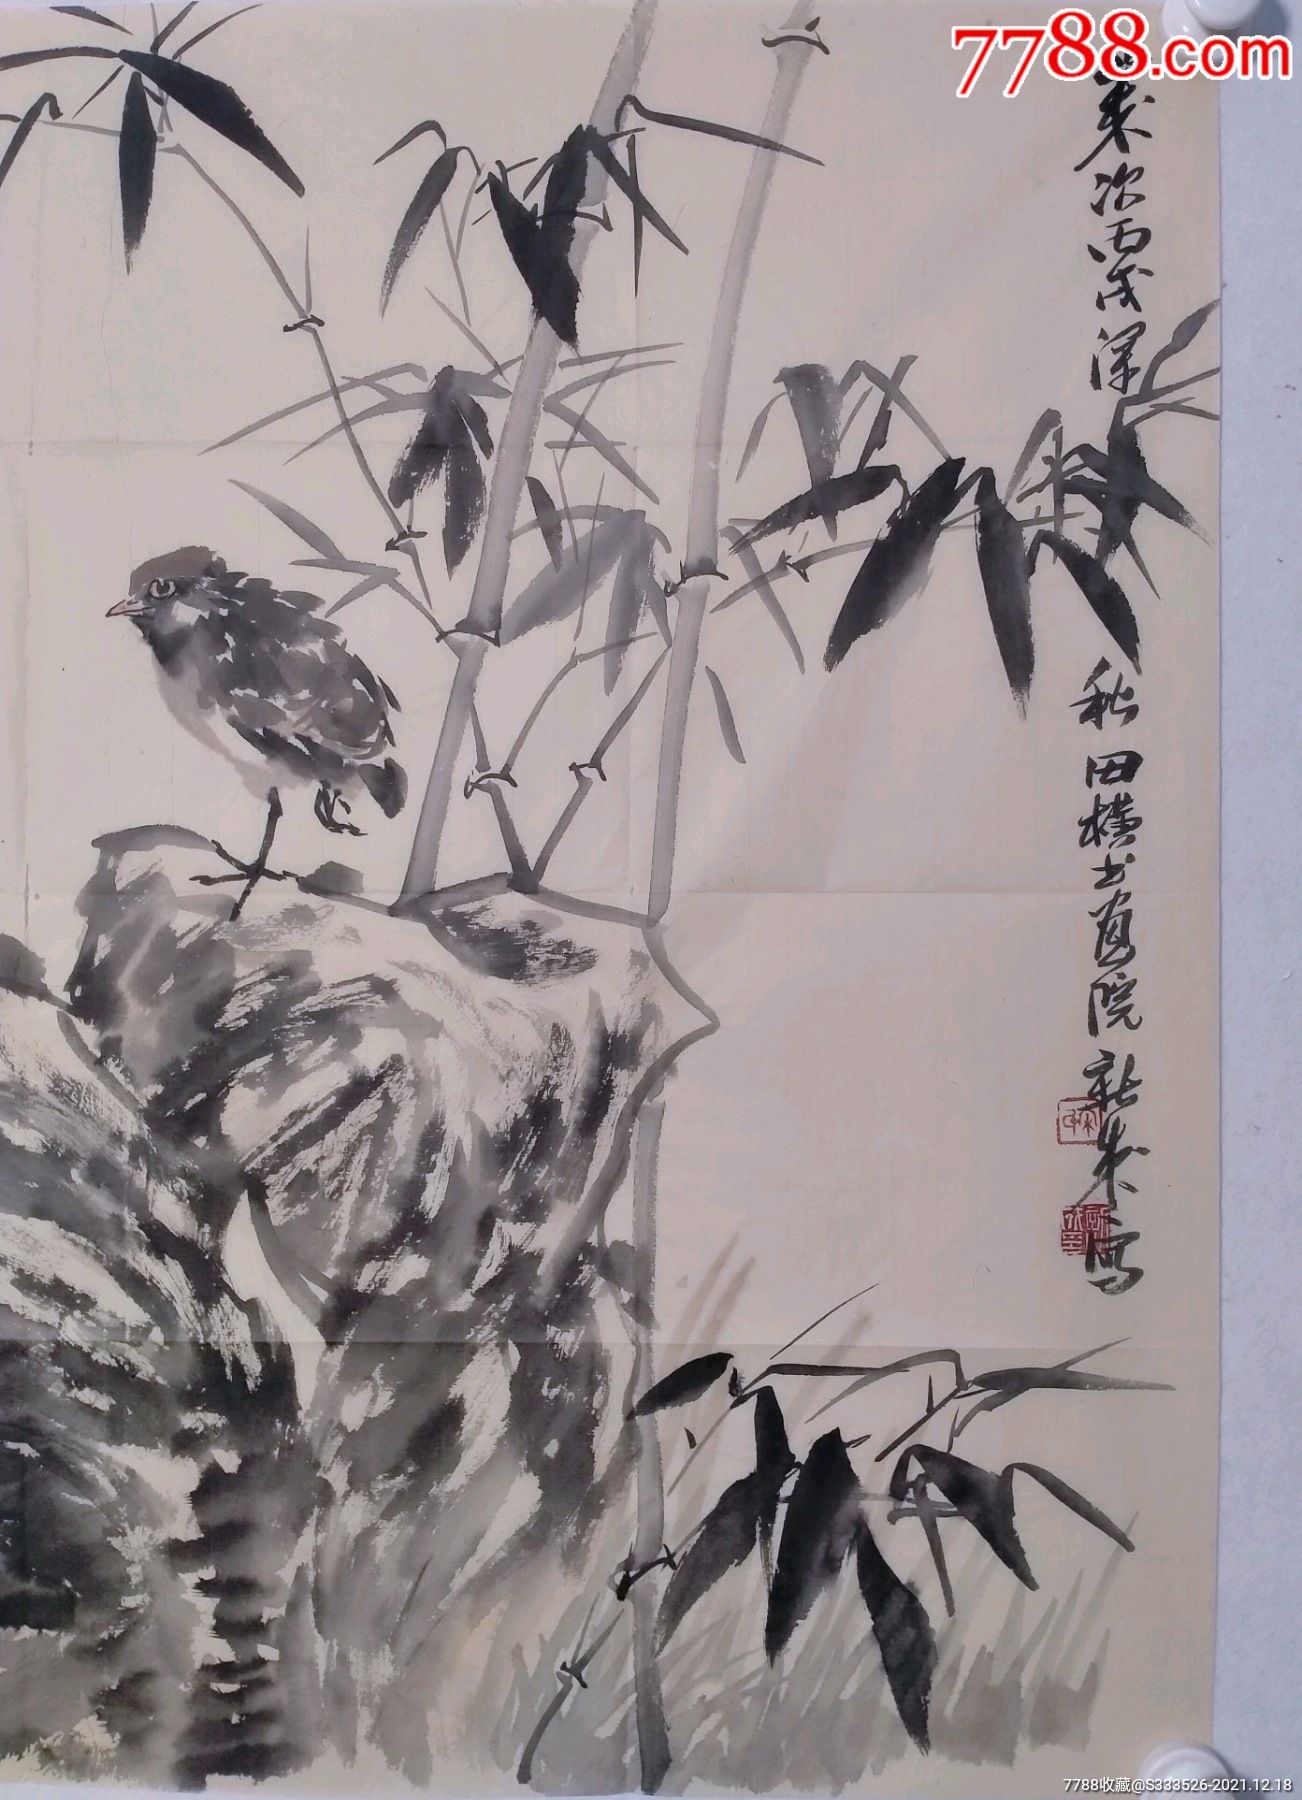 7788.com
歲次丙戌深秋田横书画院新成写
7788收藏@S333526-2021.12.18